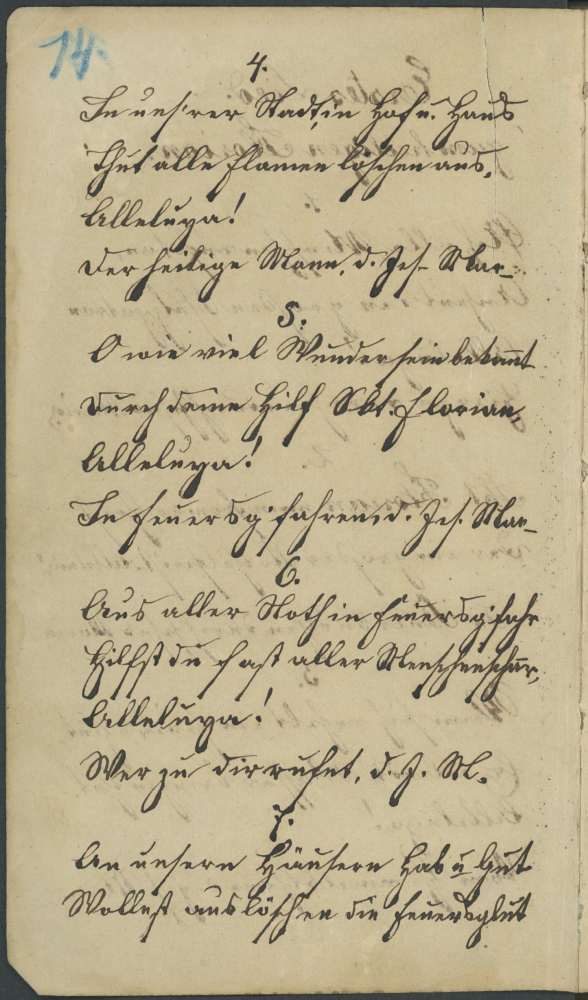 14.
4.
In uns'rer Stadt, in Hof u. Haus
Thut alle Flamen löschen aus,
Alleluya!
Der heilige Mann, d. Jes. Mar.
5.
O wie viel Wunder sein bekannt
Durch deine Hilf Skt. Florian,
Alleluya!
In Feuersg'fahren, d. Jes. Mar.
6.
Aus aller Noth in Feuersg'fahr
Hilfst du fast aller Menschenschar,
Alleluya!
Wer zu dir rufet, d. J. M.
7.
An unsern Häusern Hab u Gut
Wollest auslöschen die Feuersglut